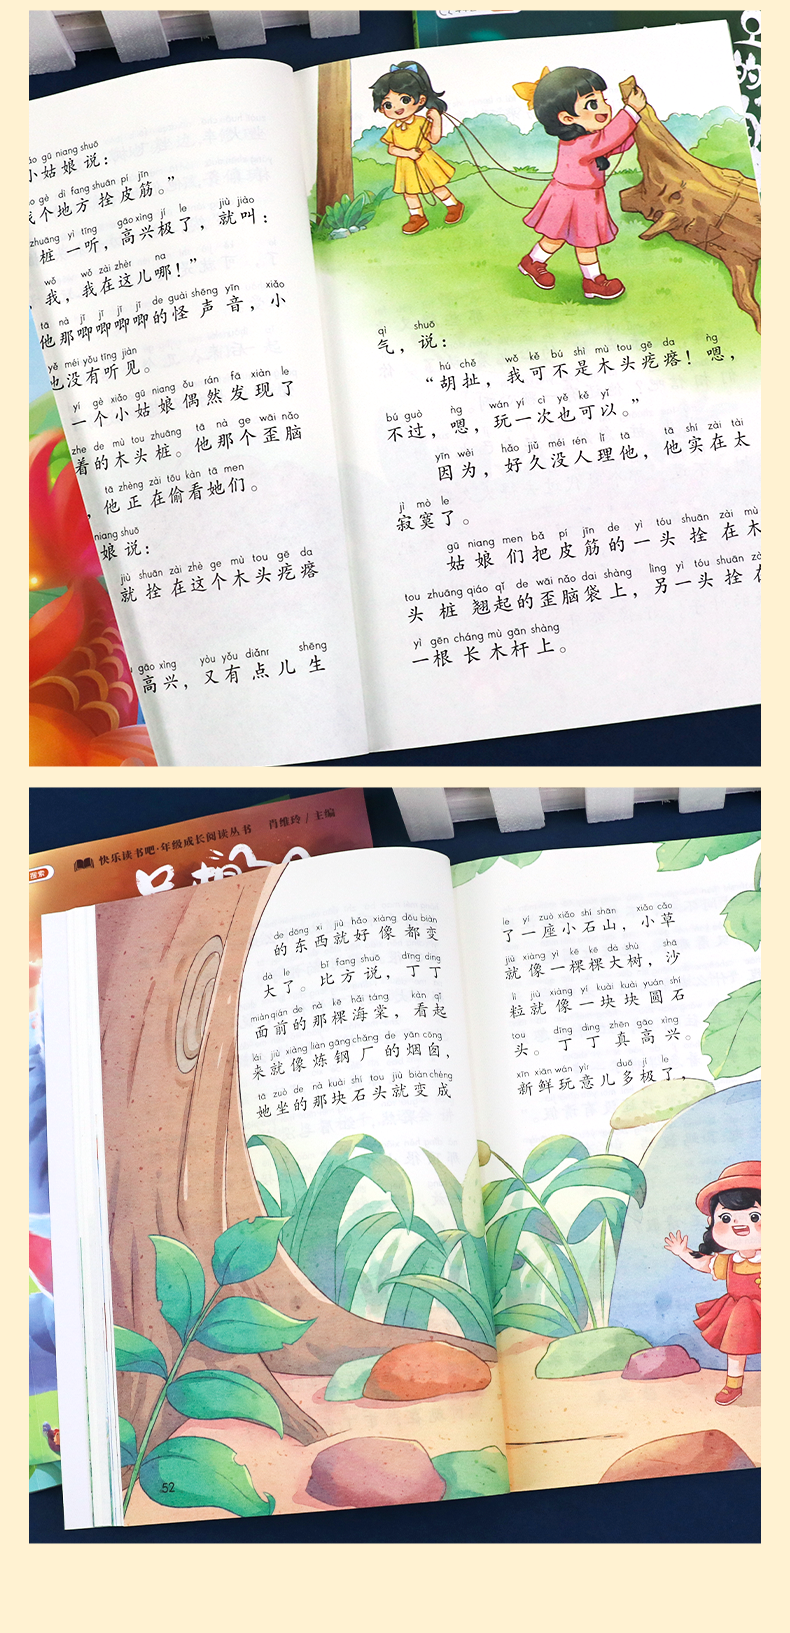 ǎo gū niang shuō
小姑娘说：
gè dì fang shuān pí jīn
个地方拴皮筋。”
zhuāng yì tīng gāo xìng jí le jiù jiào
桩一听，高兴极了，就叫：
wǒ wǒ zài zhèr na
，我，我在这儿哪！”
tā nà jī jī jī jī de guài shēng yīn xiǎo
他那唧唧唧唧的怪声音，小
yě méi yǒu tīng jiàn
也没有听见。
yí gè xiǎo gū niang ǒu rán fā xiàn le
一个小姑娘偶然发现了
zhe de mù tou zhuāng tā nà ge wāi nǎo
着的木头桩。他那个歪脑
tā zhèng zài tōu kàn tā men
，他正在偷看她们。
niang shuō
娘说：
jiù shuān zài zhè ge mù tou gē da
就拴在这个木头疙瘩
gāo xìng yòu yǒu diǎnr shēng
高兴，又有点儿生
qì shuō
气，说：
hú chě wǒ kě bú shì mù tou gē da ǹg
“胡扯，我可不是木头疙瘩！嗯，
bú guò ǹg wán yí cì yě kě yǐ
不过，嗯，玩一次也可以。”
yīn wèi hǎo jiǔ méi rén lǐ tā tā shí zài tài
因为，好久没人理他，他实在太
jì mò le
寂寞了。
gū niang men bǎ pí jīn de yì tóu shuān zài mù
姑娘们把皮筋的一头拴在木
tou zhuāng qiáo qǐ de wāi nǎo dai shàng lìng yì tóu shuān zài
头桩翘起的歪脑袋上，另一头拴在
yì gēn cháng mù gān shàng
一根长木杆上。
快乐读书吧·年级成长阅读丛书 肖维玲/主编
探索
de dōng xi jiù hǎo xiàng dōu biàn
的东西就好像都变
dà le bǐ fang shuō dīng ding
大了。比方说，丁丁
miàn qián de nà kē hǎi táng kàn qǐ
面前的那棵海棠，看起
lái jiù xiàng liàn gāng chǎng de yān cōng
来就像炼钢厂的烟囱，
tā zuò de nà kuài shí tou jiù biàn chéng
她坐的那块石头就变成
le yí zuò xiǎo shí shān xiǎo cǎo
了一座小石山，小草
jiù xiàng yì kē kē dà shù shā
就像一棵棵大树，沙
lì jiù xiàng yí kuài kuài yuán shí
粒就像一块块圆石
tou dīng ding zhēn gāo xìng
头。丁丁真高兴。
xīn xiān wán yìr duō jí le
新鲜玩意儿多极了，
52